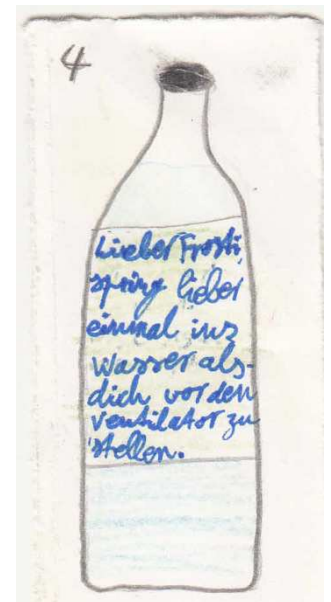 4
Lieber Frosti,
spring lieber
einmal ins
Wasser als
dich vor den
Ventilator zu
stellen.